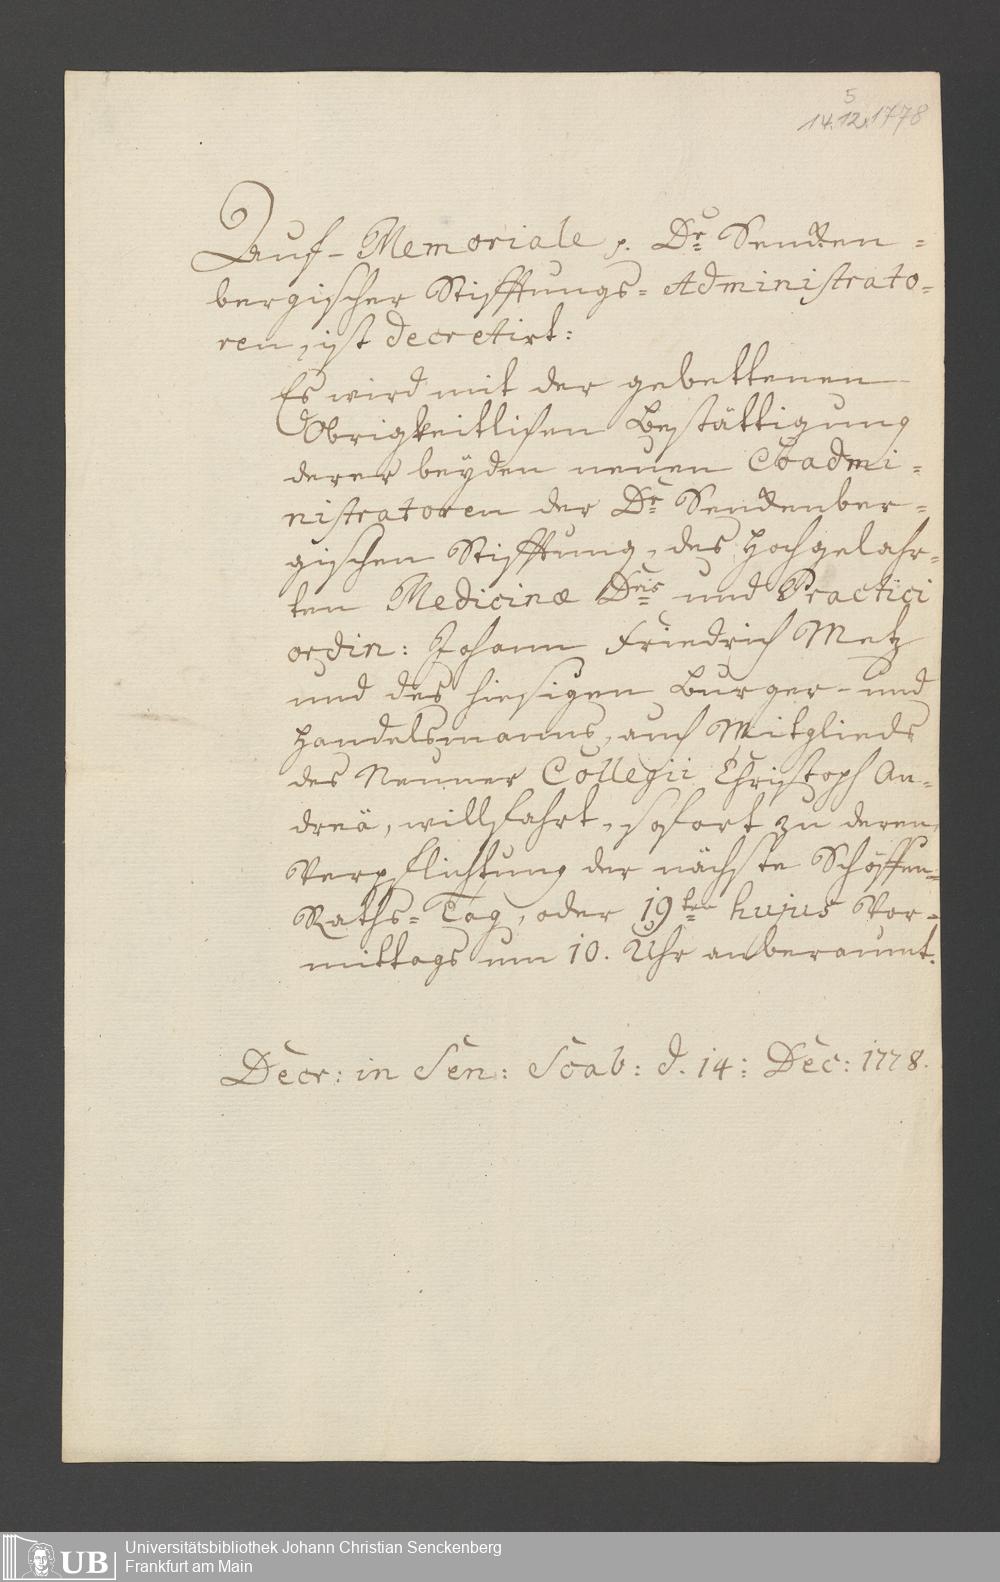 5
14.12.1778
Auf Memoriale p. Dr. Sencken=
bergischer Stifftungs=Administrato=
ren, ist decretirt:
Es wird mit der gebettenen
Obrigkeitlichen Bestättigung
derer beyden neuen Coadmi=
nistratoren der Dr. Senckenber=
gischen Stifftung, des Hochgelahr=
ten Medicinæ Dris und Practici
ordin: Johann Friedrich Metz
und des hiesigen Burger- und
Handelsmanns, auch Mitglieds
des Neuner Collegii Christoph An=
dreä, willfahrt, sofort zu deren
Verpflichtung der nächste Schöffen=
Raths=Tag, oder 19ten hujus Vor=
mittags um 10. Uhr anberaumt.
Decr: in Sen: Scab: d. 14: Dec: 1778.
UB
Universitätsbibliothek Johann Christian Senckenberg
Frankfurt am Main